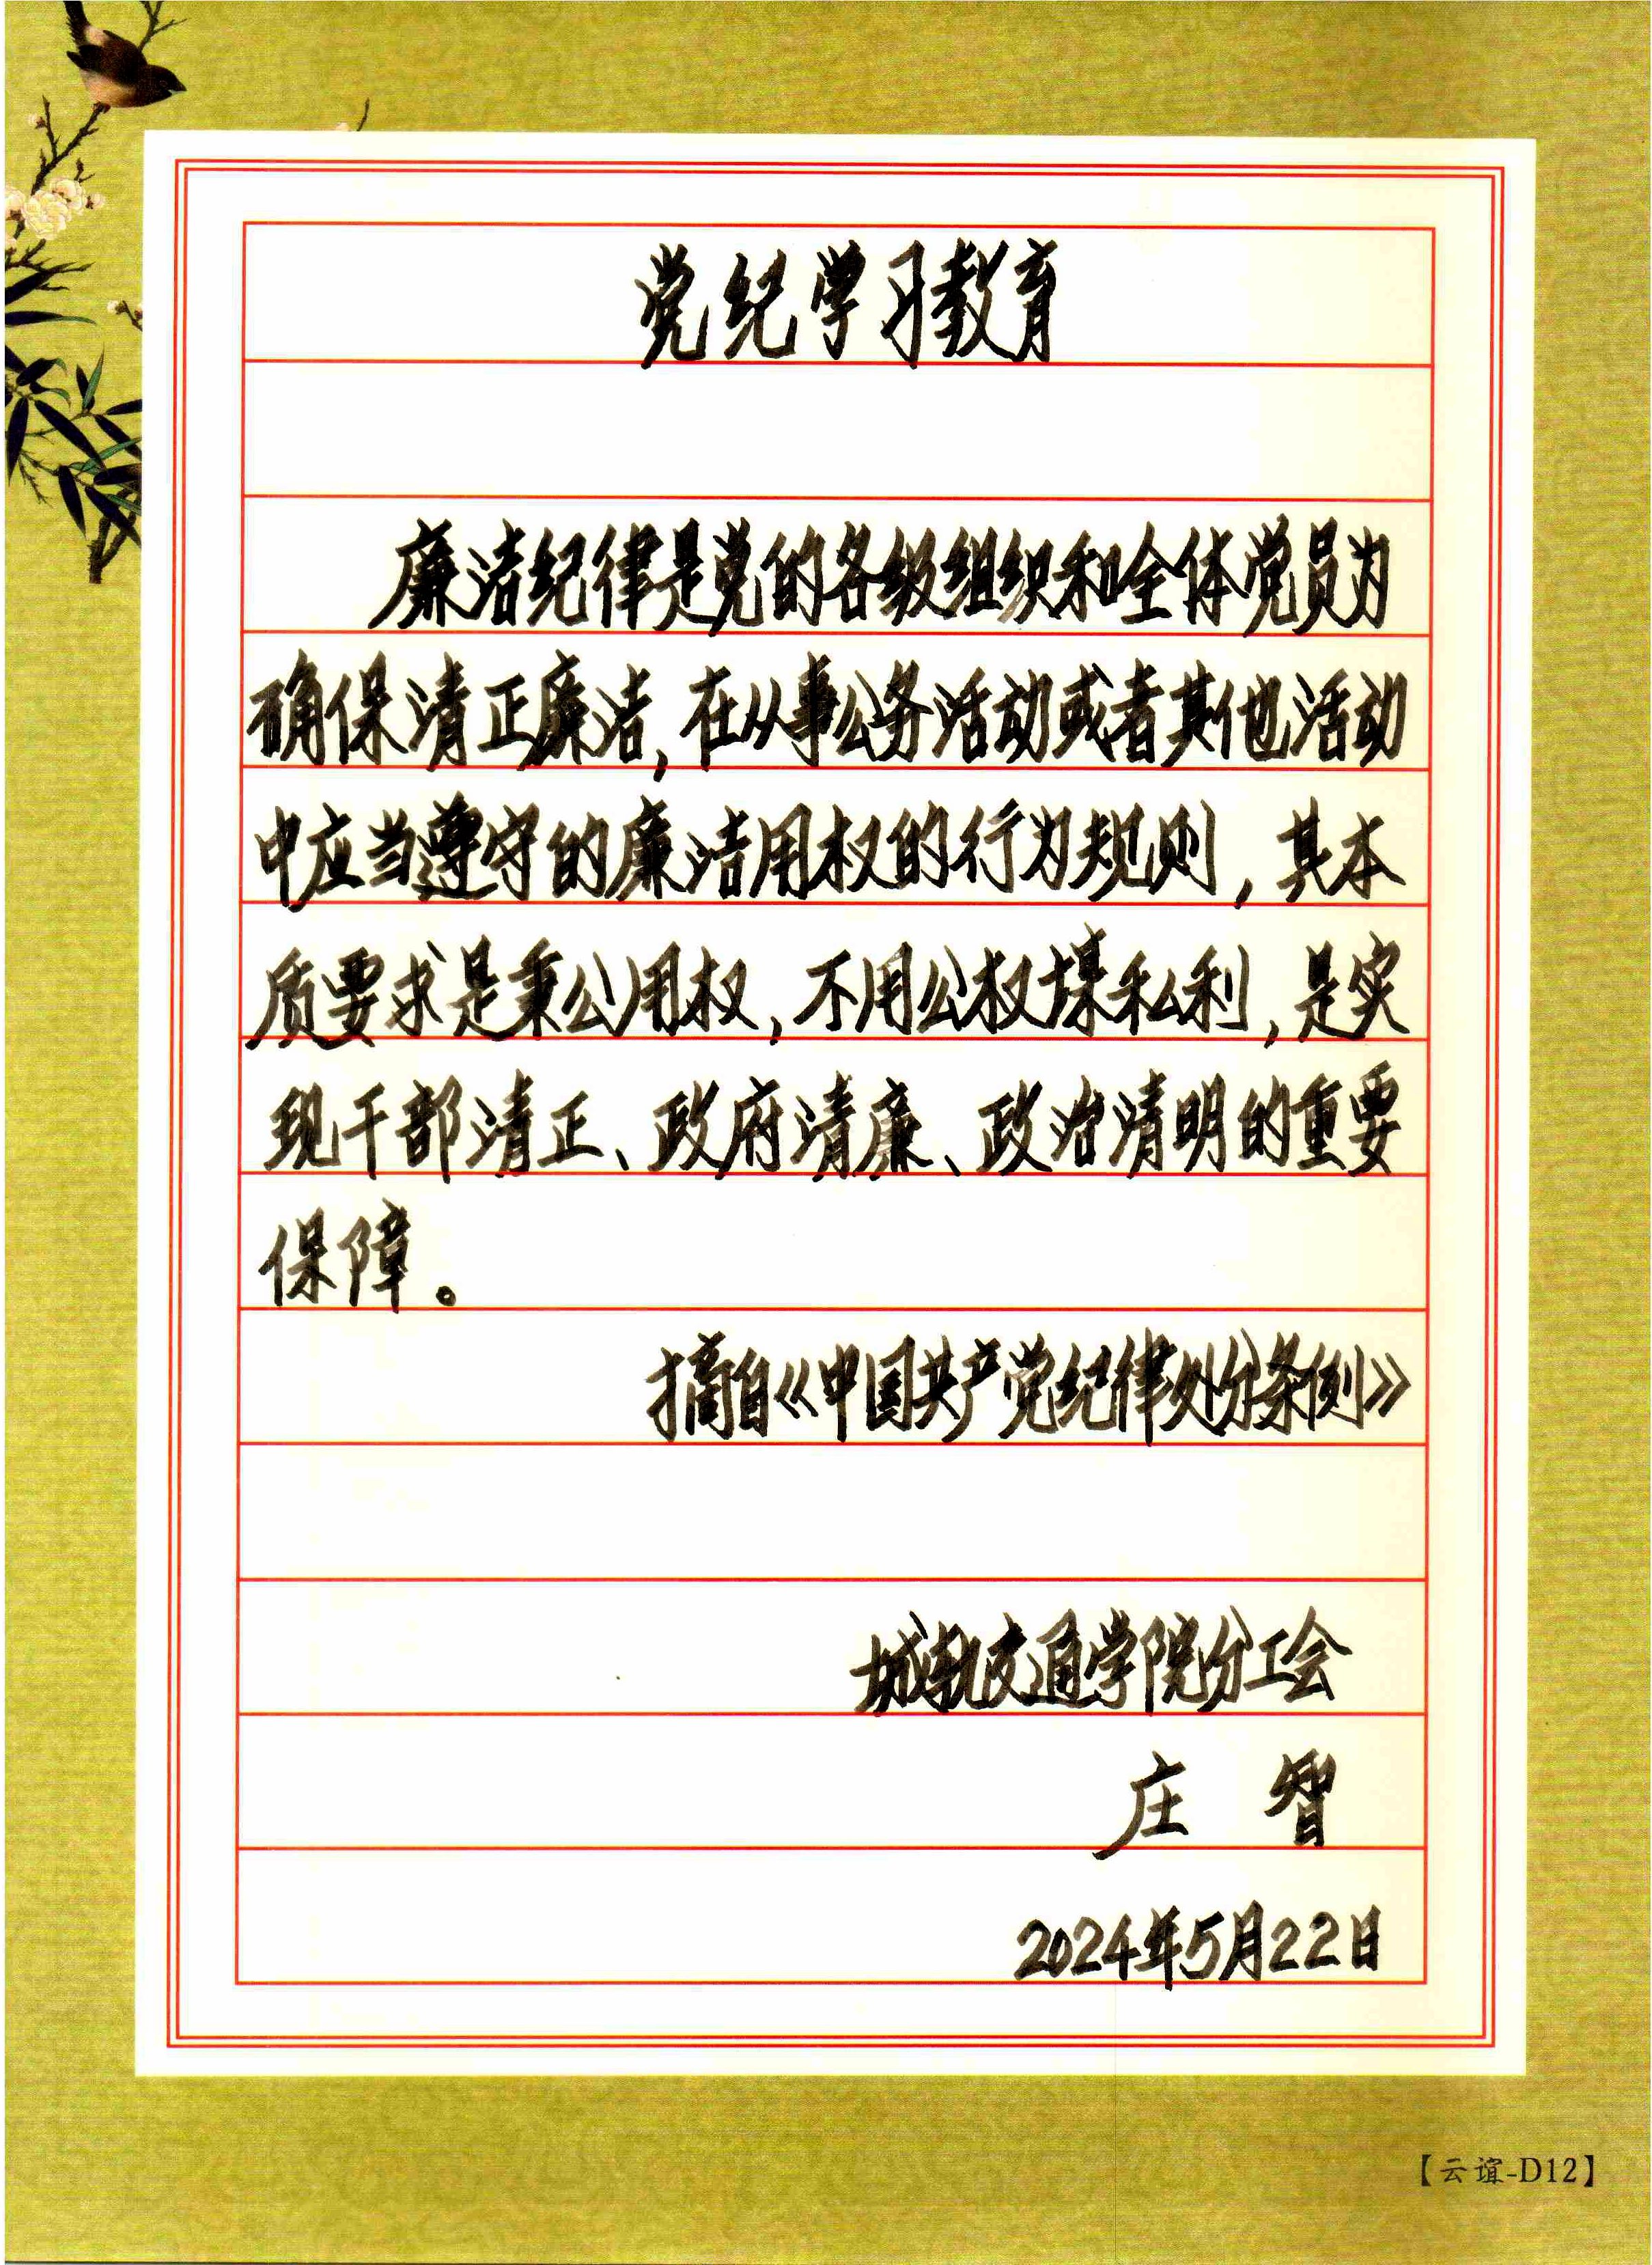 党纪学习教育
廉洁纪律是党的各级组织和全体党员为
确保清正廉洁,在从事公务活动或者其他活动
中应当遵守的廉洁用权的行为规则,其本
质要求是秉公用权,不用公权谋私利,是实
现干部清正、政府清廉、政治清明的重要
保障。
摘自《中国共产党纪律处分条例》
城轨交通学院分工会
庄 智
2024年5月22日
【云谊-D12】